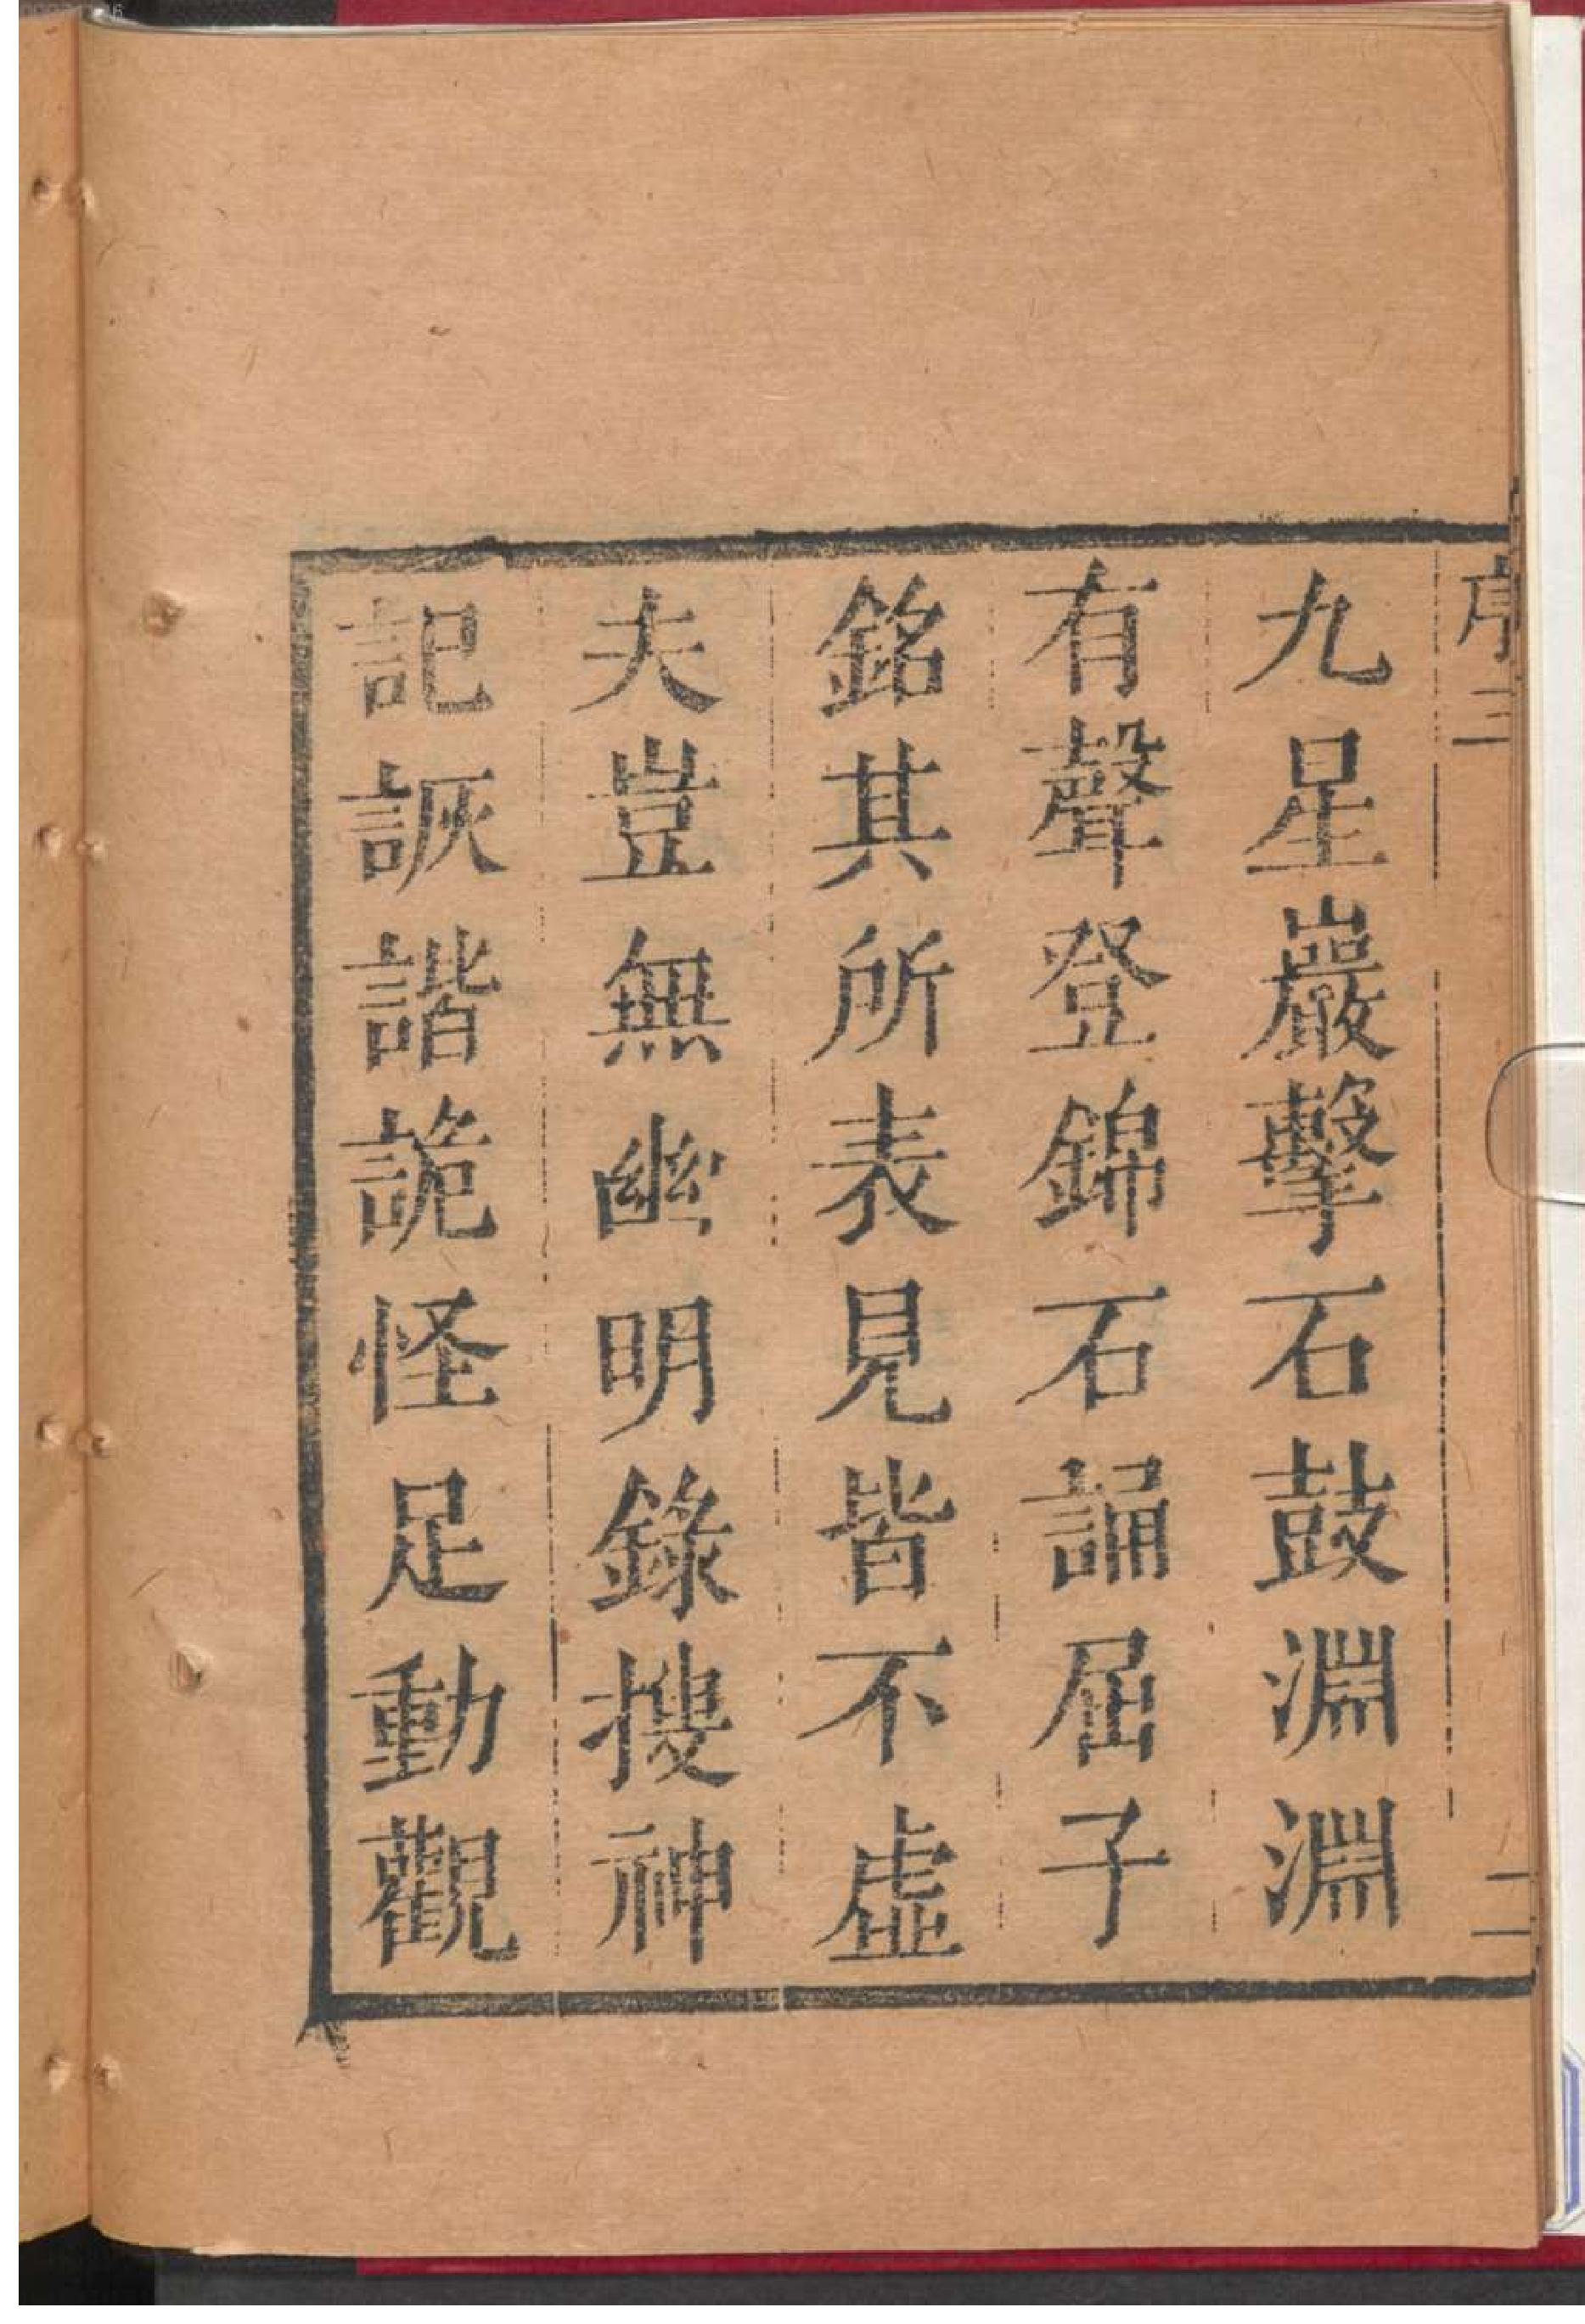 序三
二
九星巖擊石鼓淵淵
有聲登錦石誦屈子
銘其所表見皆不虛
夫豈無幽明錄搜神
記詼諧詭怪足動觀